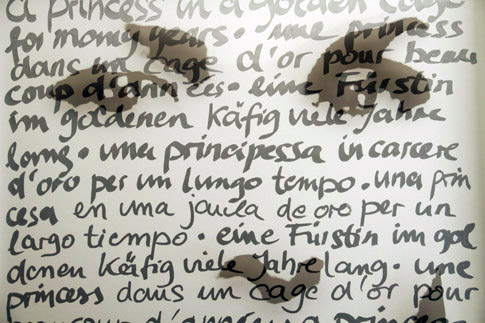 a princess in a golden cage
for many years · une princess
dans un cage d'or pour beau
coup d'années · eine Fürstin
im goldenen Käfig viele Jahre
lang · una principessa in carcere
d'oro per un lungo tempo. una prin
cesa en una jaula de oro per un
largo tiempo · eine Fürstin im gol
denen Käfig viele Jahre lang · une
princess dans un cage d'or pour
beaucoup d'années · a princess